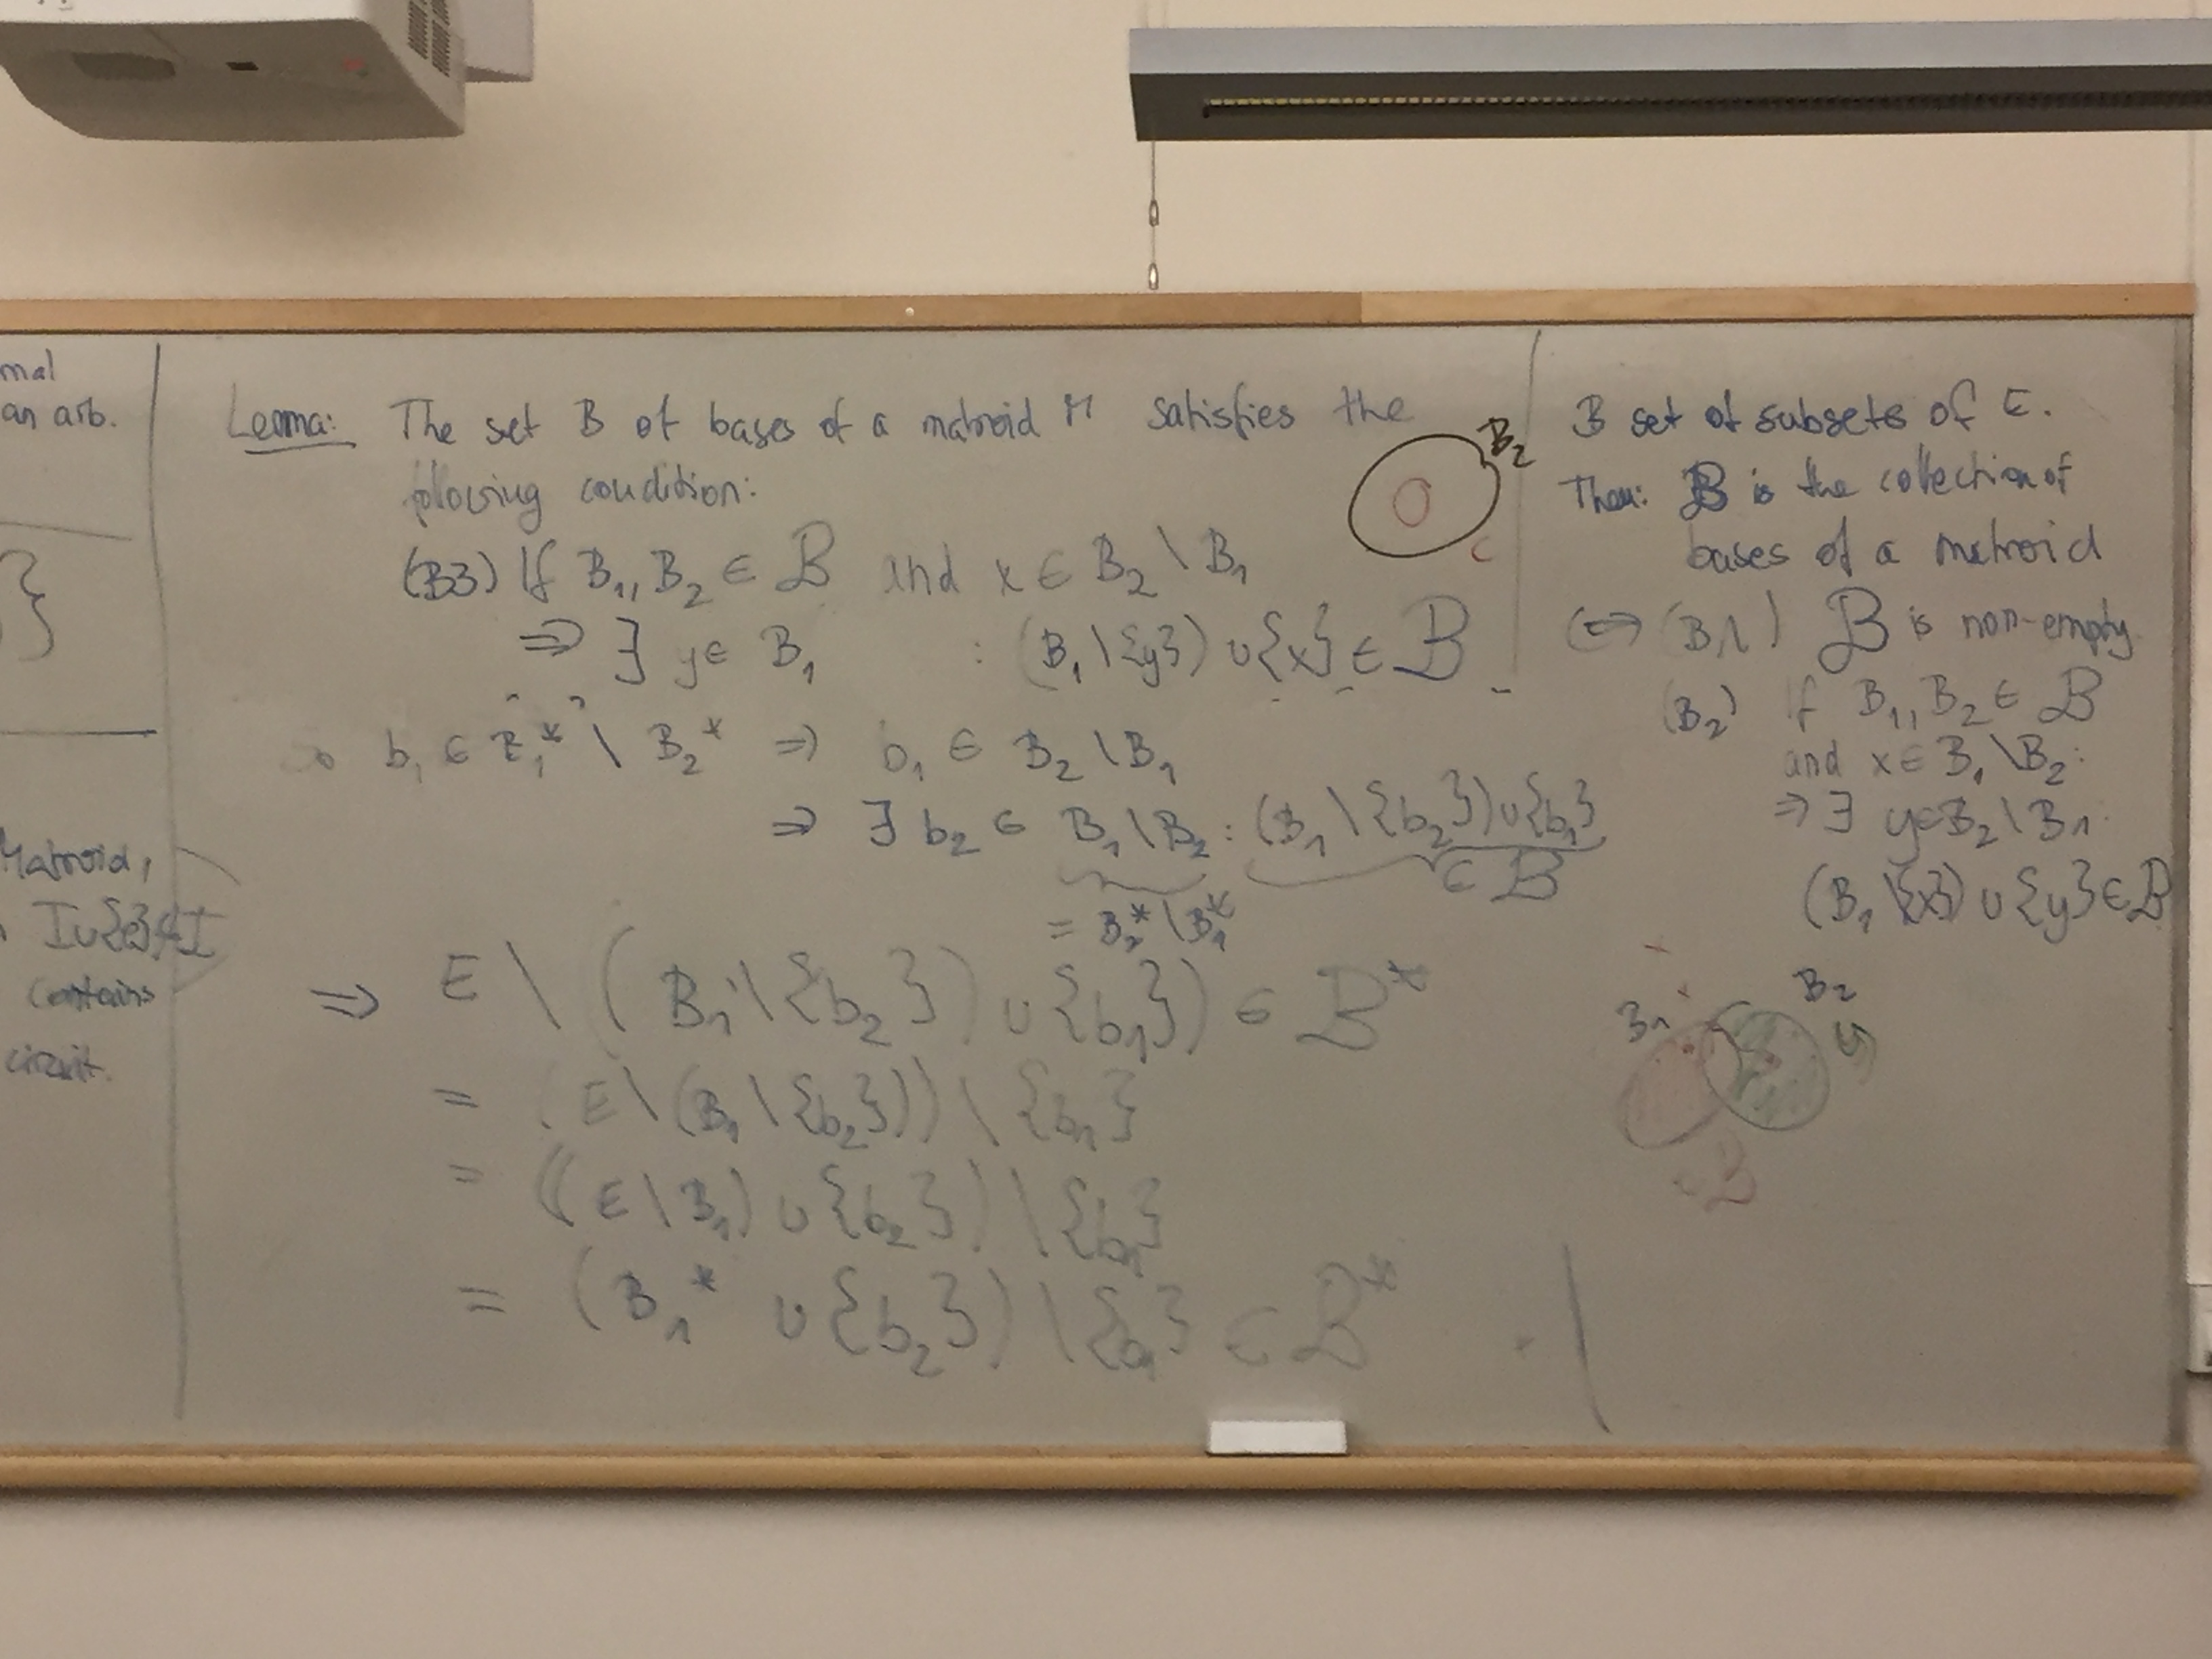 mal
an arb.
}
Matroid,
I∪{e}∉I
contains
circuit.
Lemma: The set B of bases of a matroid M satisfies the
following condition:
(B3) If B₁, B₂ ∈ B and x ∈ B₂ \ B₁
⇒ ∃ y ∈ B₁ : (B₁ \ {y}) ∪ {x} ∈ B
B₂
C
b₁ ∈ B₁* \ B₂* ⇒ b₁ ∈ B₂ \ B₁
⇒ ∃ b₂ ∈ B₁ \ B₂ : (B₁ \ {b₂}) ∪ {b₁}
∈ B
= B₂* \ B₁*
⇒ E \ (B₁ \ {b₂}) ∪ {b₁}) ∈ B*
= (E \ (B₁ \ {b₂})) \ {b₁}
= ((E \ B₁) ∪ {b₂}) \ {b₁}
= (B₁* ∪ {b₂}) \ {b₁} ∈ B*
B set of subsets of E.
Then: B is the collection of
bases of a matroid
⇔ (B1) B is non-empty
(B2) If B₁, B₂ ∈ B
and x ∈ B₁ \ B₂:
⇒ ∃ y ∈ B₂ \ B₁:
(B₁ \ {x}) ∪ {y} ∈ B
B₁ B₂